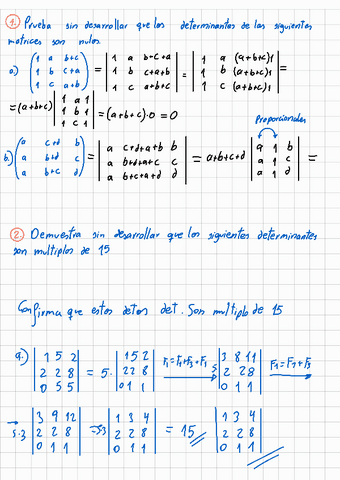 1. Prueba sin desarrollar que los determinantes de las siguientes
matrices son nulos.
a.) (1 a b+c | 1 b c+a | 1 c a+b) = |1 a b+c+a | 1 b c+a+b | 1 c a+b+c| = |1 a (a+b+c)1 | 1 b (a+b+c)1 | 1 c (a+b+c)1| =
=(a+b+c) |1 a 1 | 1 b 1 | 1 c 1| = (a+b+c)·0 = 0
Proporcionales
b.) (a c+d b | a b+d c | a b+c d) = |a c+d+a+b b | a b+d+a+c c | a b+c+a+d d| = a+b+c+d |a 1 b | a 1 c | a 1 d| =
2. Demuestra sin desarrollar que los siguientes determinantes
son multiplos de 15
Confirma que estos datos det. Son multiplo de 15
a.) |1 5 2 | 2 2 8 | 0 5 5| = 5· |1 5 2 | 2 2 8 | 0 1 1| 5 |3 8 11 | 2 2 8 | 0 1 1| F1=F1+F3
5·3 |3 9 12 | 2 2 8 | 0 1 1| = |1 3 4 | 2 2 8 | 0 1 1| = 15 |1 3 4 | 2 2 8 | 0 1 1|